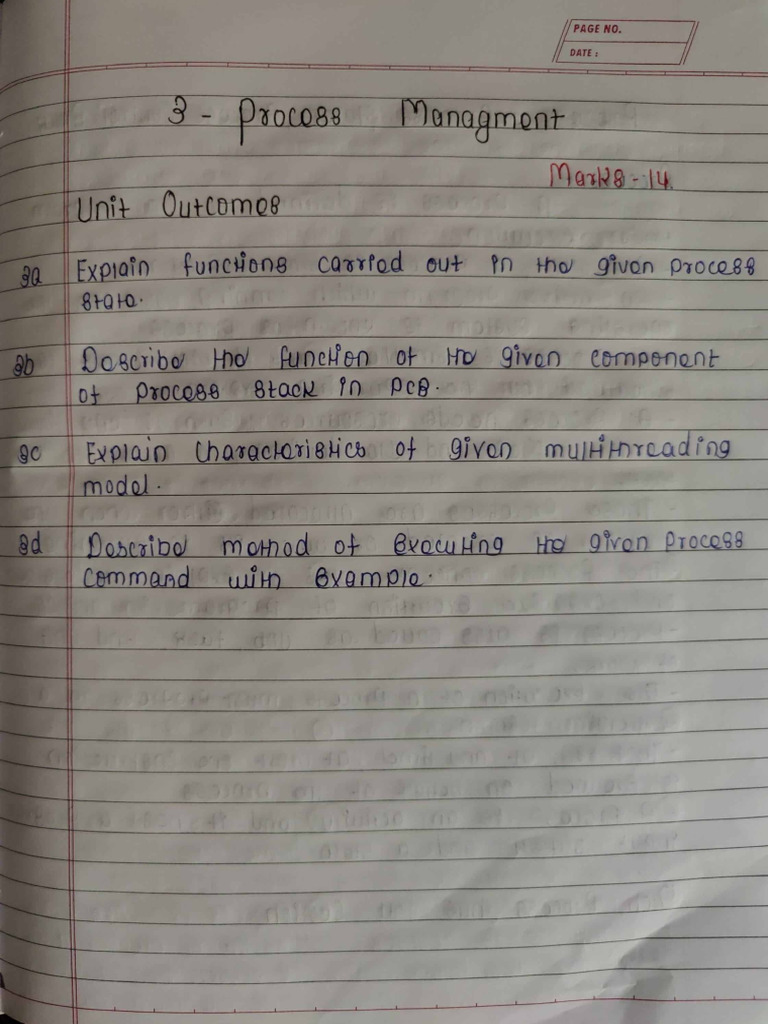 PAGE NO.
DATE :
3 - Process Managment
Marks - 14.
Unit Outcomes
3a Explain functions carried out in the given process
state.
3b Describe the function of the given component
of process stack in PCB.
3c Explain characteristics of given multithreading
model.
3d Describe method of executing the given process
command with example.